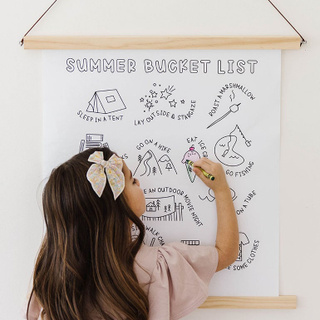 SUMMER BUCKET LIST
SLEEP IN A TENT
LAY OUTSIDE & STARGAZE
ROAST A MARSHMALLOW
GO ON A HIKE
EAT ICE
GO FISHING
AN OUTDOOR MOVIE NIGHT
ON A TUBE
SOME CLOTHES